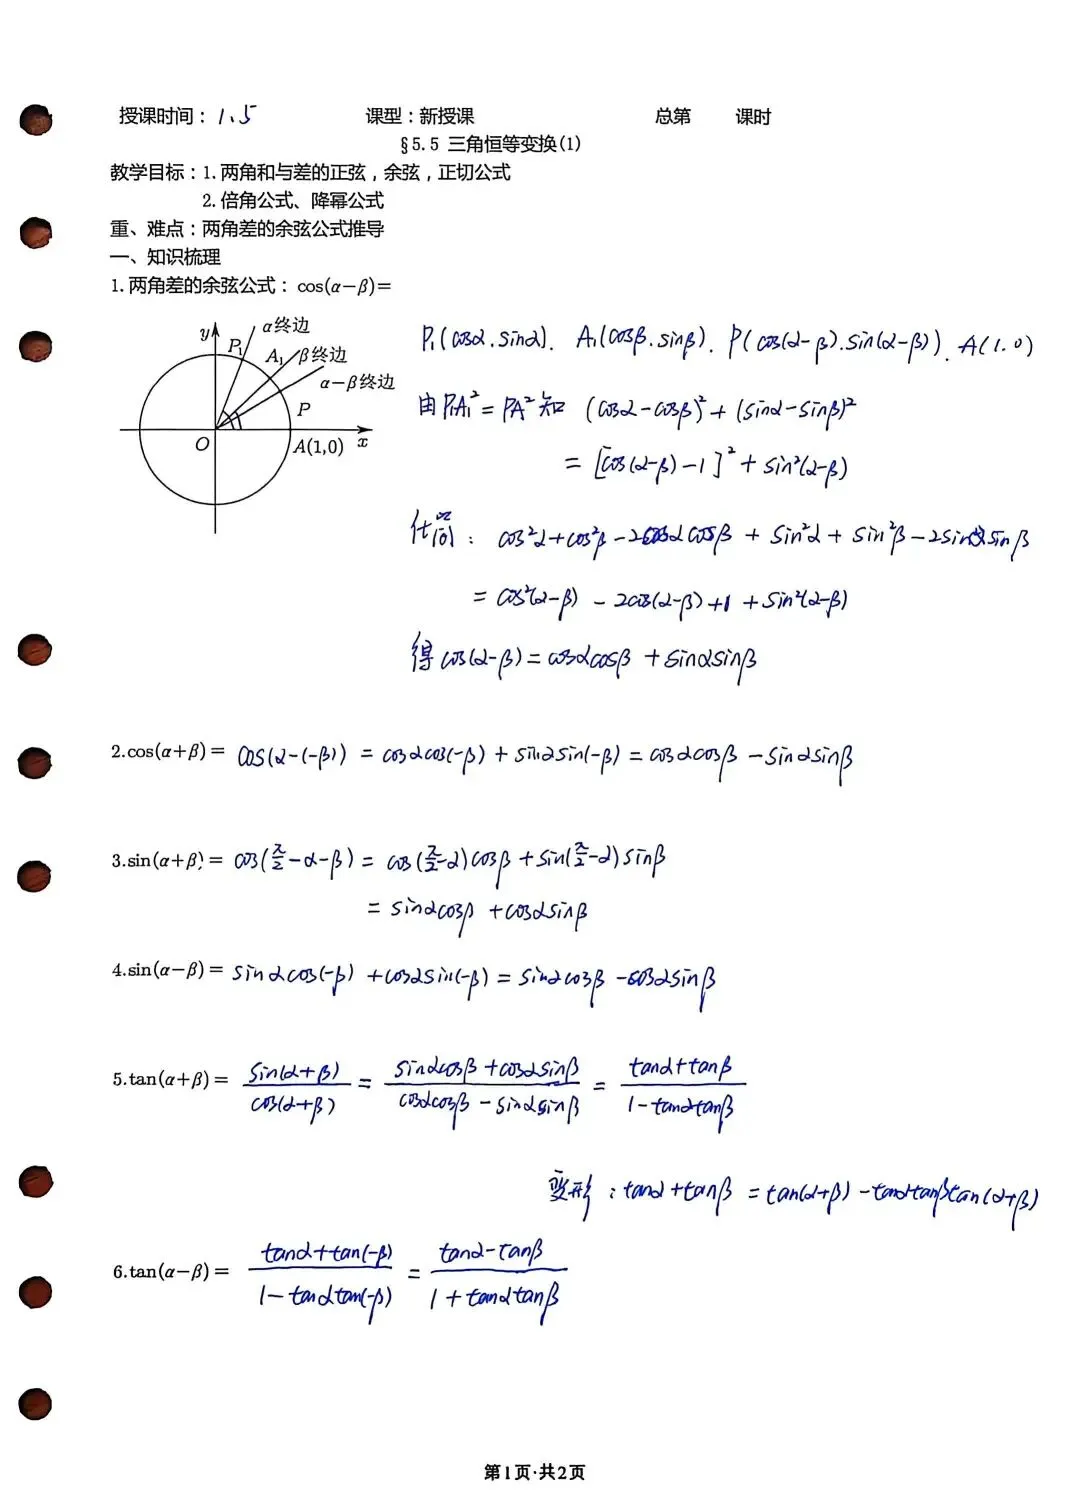 授课时间：1、5 课型：新授课 总第 课时
§5.5 三角恒等变换(1)
教学目标：1.两角和与差的正弦，余弦，正切公式
2.倍角公式、降幂公式
重、难点：两角差的余弦公式推导
一、知识梳理
1.两角差的余弦公式：cos(α−β)=
y P₁ α终边
A₁ β终边
α−β终边
P
O A(1,0) x
P₁(cosα.sinα). A₁(cosβ.sinβ). P(cos(α-β).sin(α-β)). A(1.0)
由P₁A₁²=PA²知 (cosα-cosβ)²+(sinα-sinβ)²
=[cos(α-β)-1]²+sin²(α-β)
化简：cos²α+cos²β-2cosαcosβ+sin²α+sin²β-2sinαsinβ
=cos²(α-β)-2cos(α-β)+1+sin²(α-β)
得cos(α-β)=cosαcosβ+sinαsinβ
2.cos(α+β)= cos(α-(-β))=cosαcos(-β)+sinαsin(-β)=cosαcosβ-sinαsinβ
3.sin(α+β)= cos(π/2-α-β)=cos(π/2-α)cosβ+sin(π/2-α)sinβ
=sinαcosβ+cosαsinβ
4.sin(α−β)= sinαcos(-β)+cosαsin(-β)=sinαcosβ-cosαsinβ
5.tan(α+β)= sin(α+β)/cos(α+β) = (sinαcosβ+cosαsinβ)/(cosαcosβ-sinαsinβ) = (tanα+tanβ)/(1-tanαtanβ)
变形：tanα+tanβ=tan(α+β)-tanαtanβtan(α+β)
6.tan(α−β)= (tanα+tan(-β))/(1-tanαtan(-β)) = (tanα-tanβ)/(1+tanαtanβ)
第1页·共2页